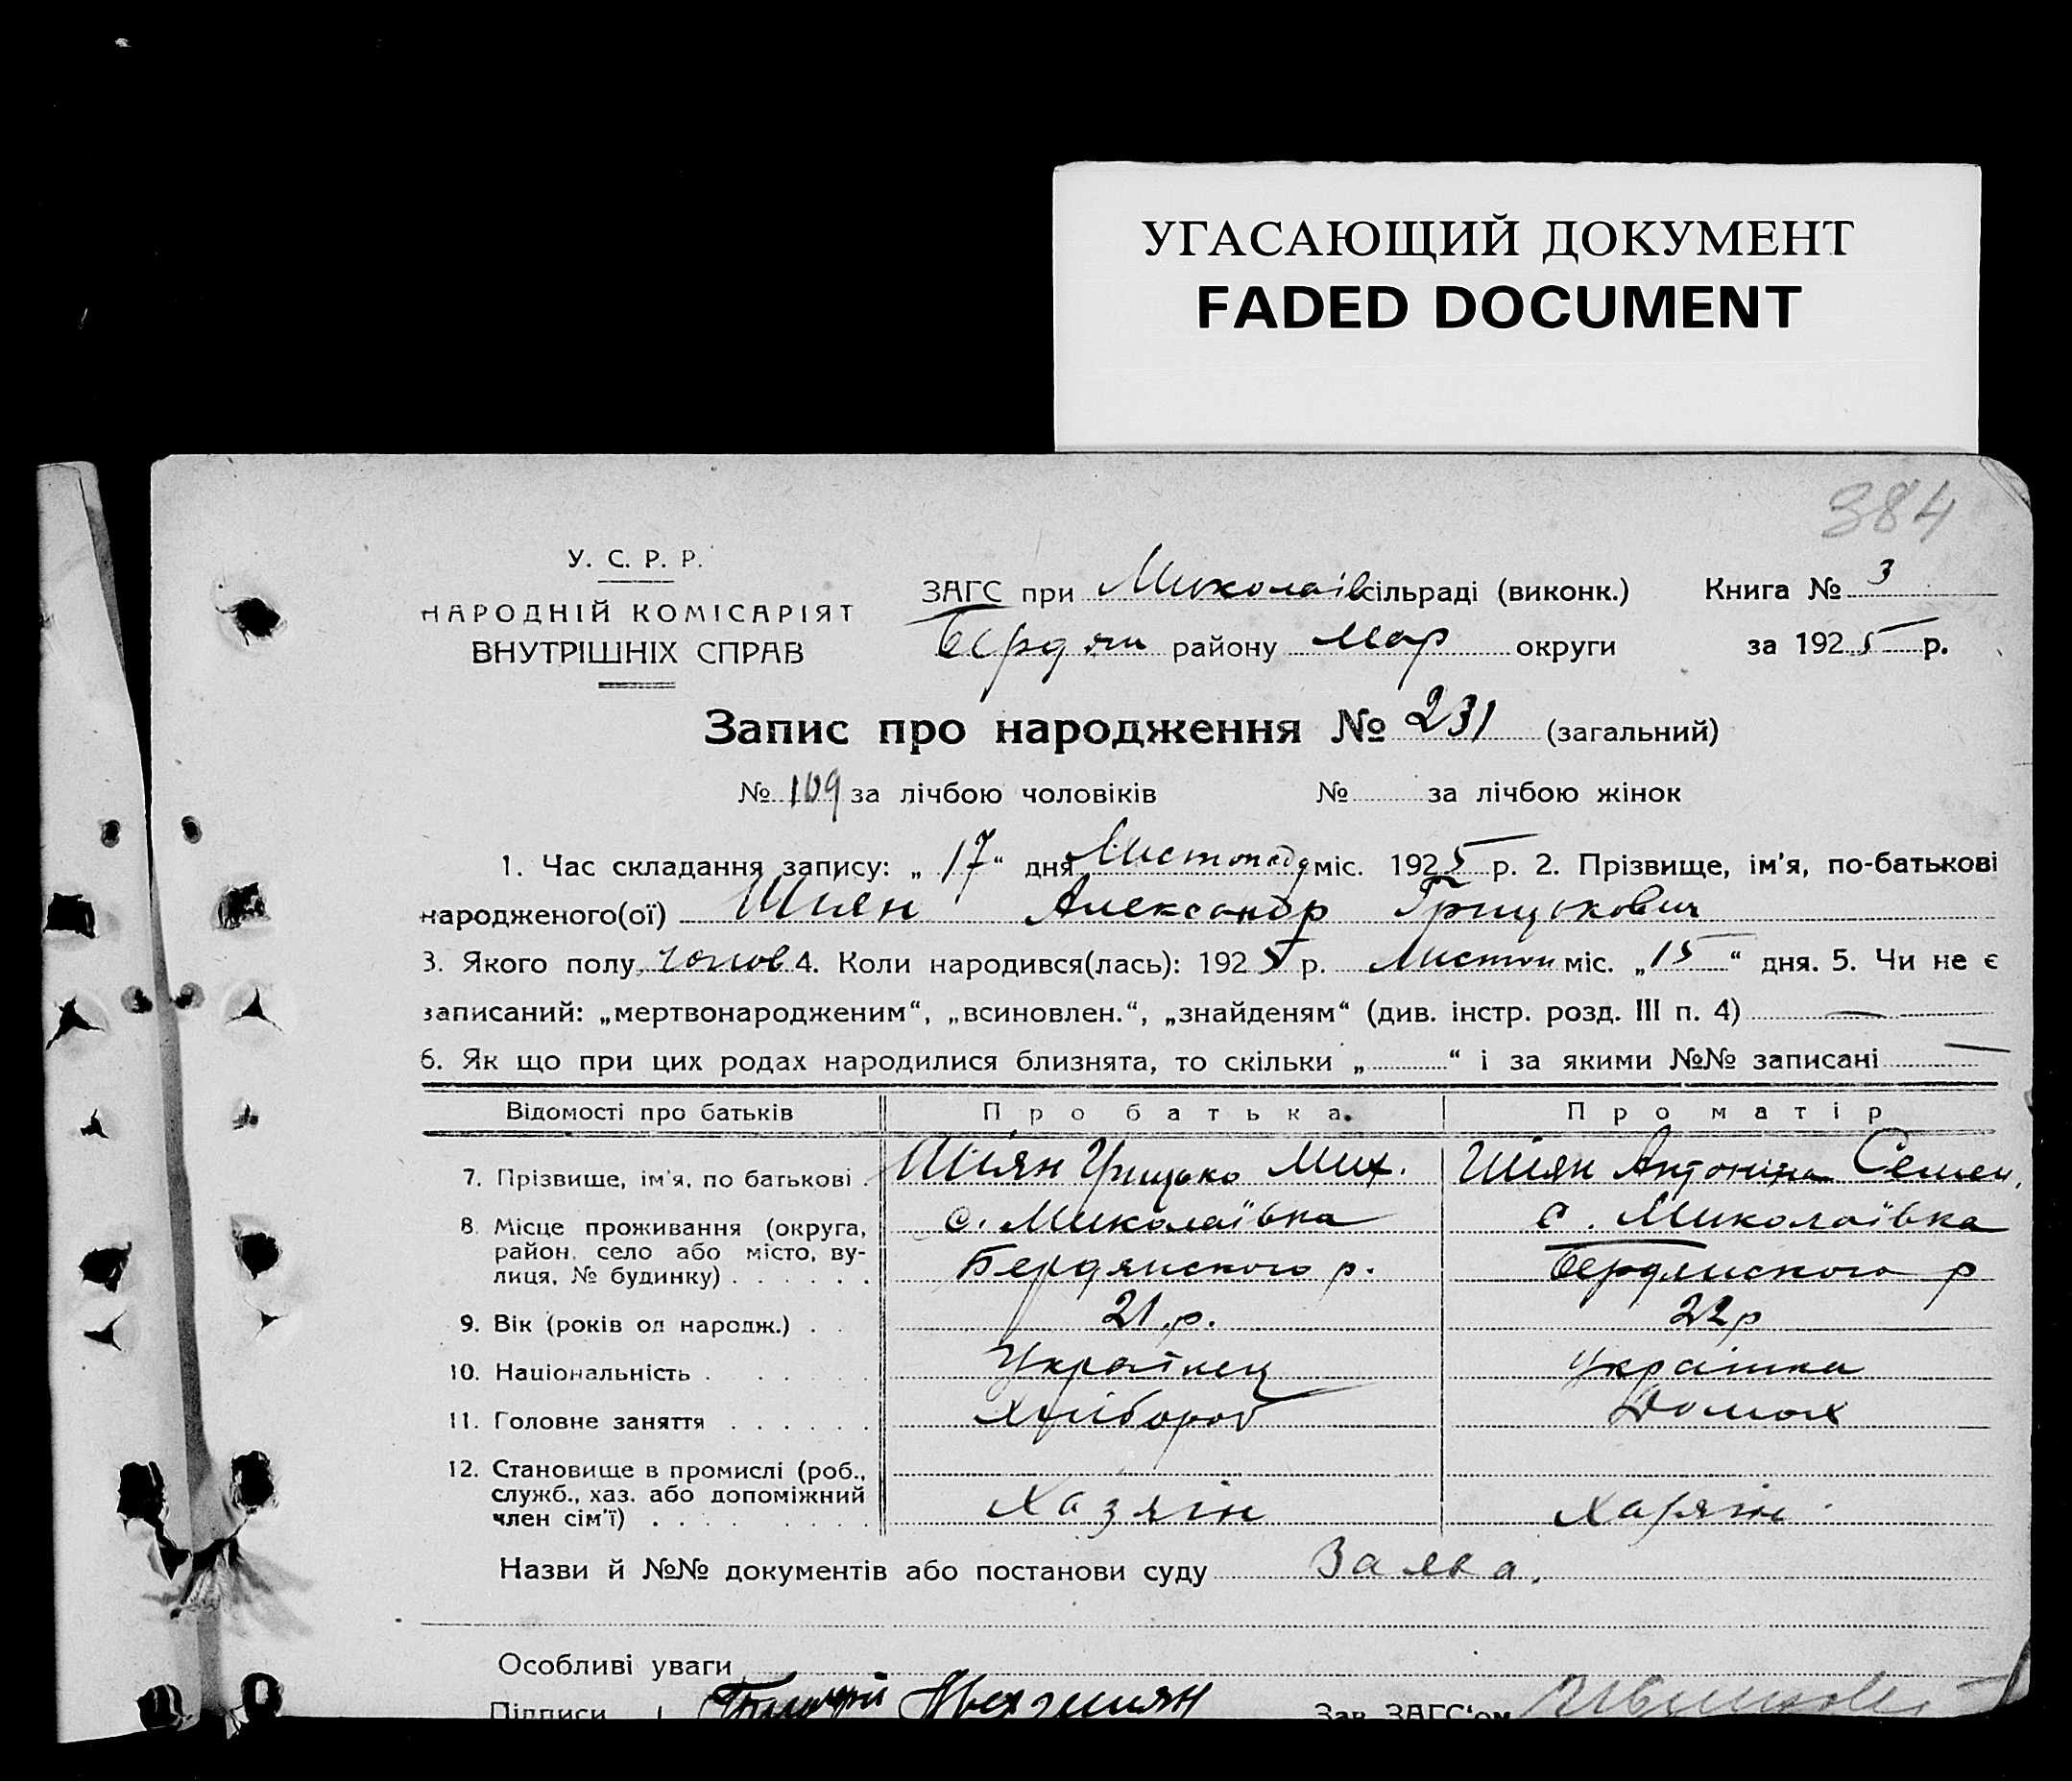 УГАСАЮЩИЙ ДОКУМЕНТ
FADED DOCUMENT
384
У. С. Р. Р.
НАРОДНІЙ КОМІСАРІЯТ
ВНУТРІШНІХ СПРАВ
ЗАГС при Миколаїв сільраді (виконк.) Книга № 3
Бердян району Мар округи за 1925 р.
Запис про народження № 231 (загальний)
№ 109 за лічбою чоловіків № за лічбою жінок
1. Час складання запису: „17“ дня Листопаду міс. 1925 р. 2. Прізвище, ім'я, по-батькові
народженого(ої) Шиян Александр Грицькович
3. Якого полу чолов 4. Коли народився(лась): 1925 р. Листоп міс. „15“ дня. 5. Чи не є
записаний: „мертвонародженим“, „всиновлен.“, „знайденям“ (див. інстр. розд. III п. 4) —
6. Як що при цих родах народилися близнята, то скільки „ “ і за якими №№ записані —
Відомості про батьків Про батька. Про матір
7. Прізвище, ім'я, по батькові . Шіян Грицько Мих. Шіян Антоніна Семен.
8. Місце проживання (округа, район, село або місто, вулиця, № будинку) . . . . . .
с. Миколаївка с. Миколаївка
Бердянского р. Бердянского р
9. Вік (років од народж.) . . 21.р. 22р
10. Національність . . . . Українец Українка
11. Головне заняття . . . . . . Хлібороб Домох
12. Становище в промислі (роб., служб., хаз. або допоміжний член сім'ї) . . . . . . . Хазяїн Хазяїн.
Назви й №№ документів або постанови суду Заява.
Особливі уваги
Підписи Зав. ЗАГС'ом